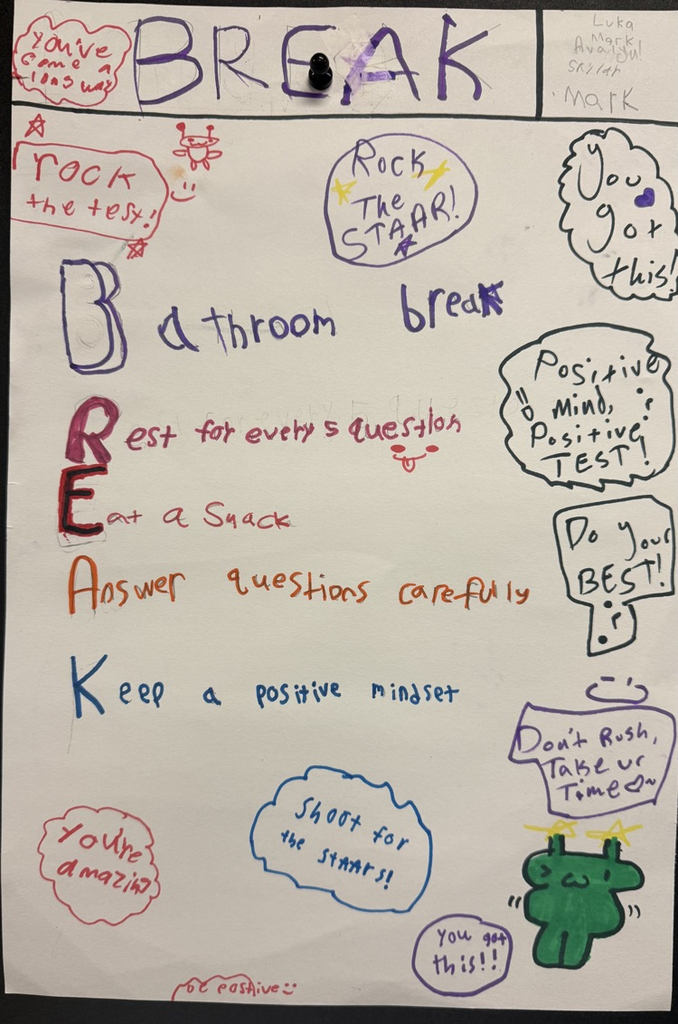 You've
come a
long way
BREAK
Luka
Mark
Skylar
Mark
rock
the test!
Rock
The
STAAR!
You
got
this!
Bathroom break
Rest for every 5 question
Eat a Snack
Answer questions carefully
Keep a positive mindset
Positive
Mind,
Positive
TEST!
Do Your
BEST!
Don't Rush,
Take ur
Time
You're
amazing
Shoot for
the STAARs!
You got
this!!
be positive